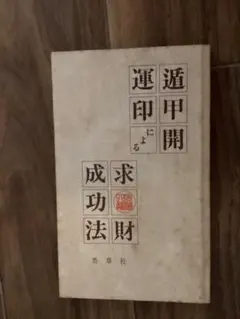 遁甲開
運印による
求財
成功法